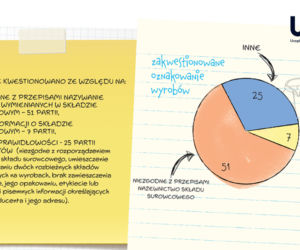 KWESTIONOWANO ZE WZGLĘDU NA:
NE Z PRZEPISAMI NAZYWANIE
WYMIENNYCH W SKŁADZIE
OWYM - 51 PARTII,
FORMACJI O SKŁADZIE
OWYM - 7 PARTII,
PRAWIDŁOWOŚCI - 25 PARTII
TÓW (niezgodne z rozporządzeniem
składu surowcowego, umieszczenie
aniu dwóch rozbieżnych składów
ych na wyrobach, brak zamieszczenia
e, jego opakowaniu, etykiecie lub
i pisemnych informacji określających
ducenta i jego adresu).
U
Urząd
zakwestionowane
oznakowanie
wyrobów
INNE
25
7
51
NIEZGODNE Z PRZEPISAMI
NAZEWNICTWO SKŁADU
SUROWCOWEGO